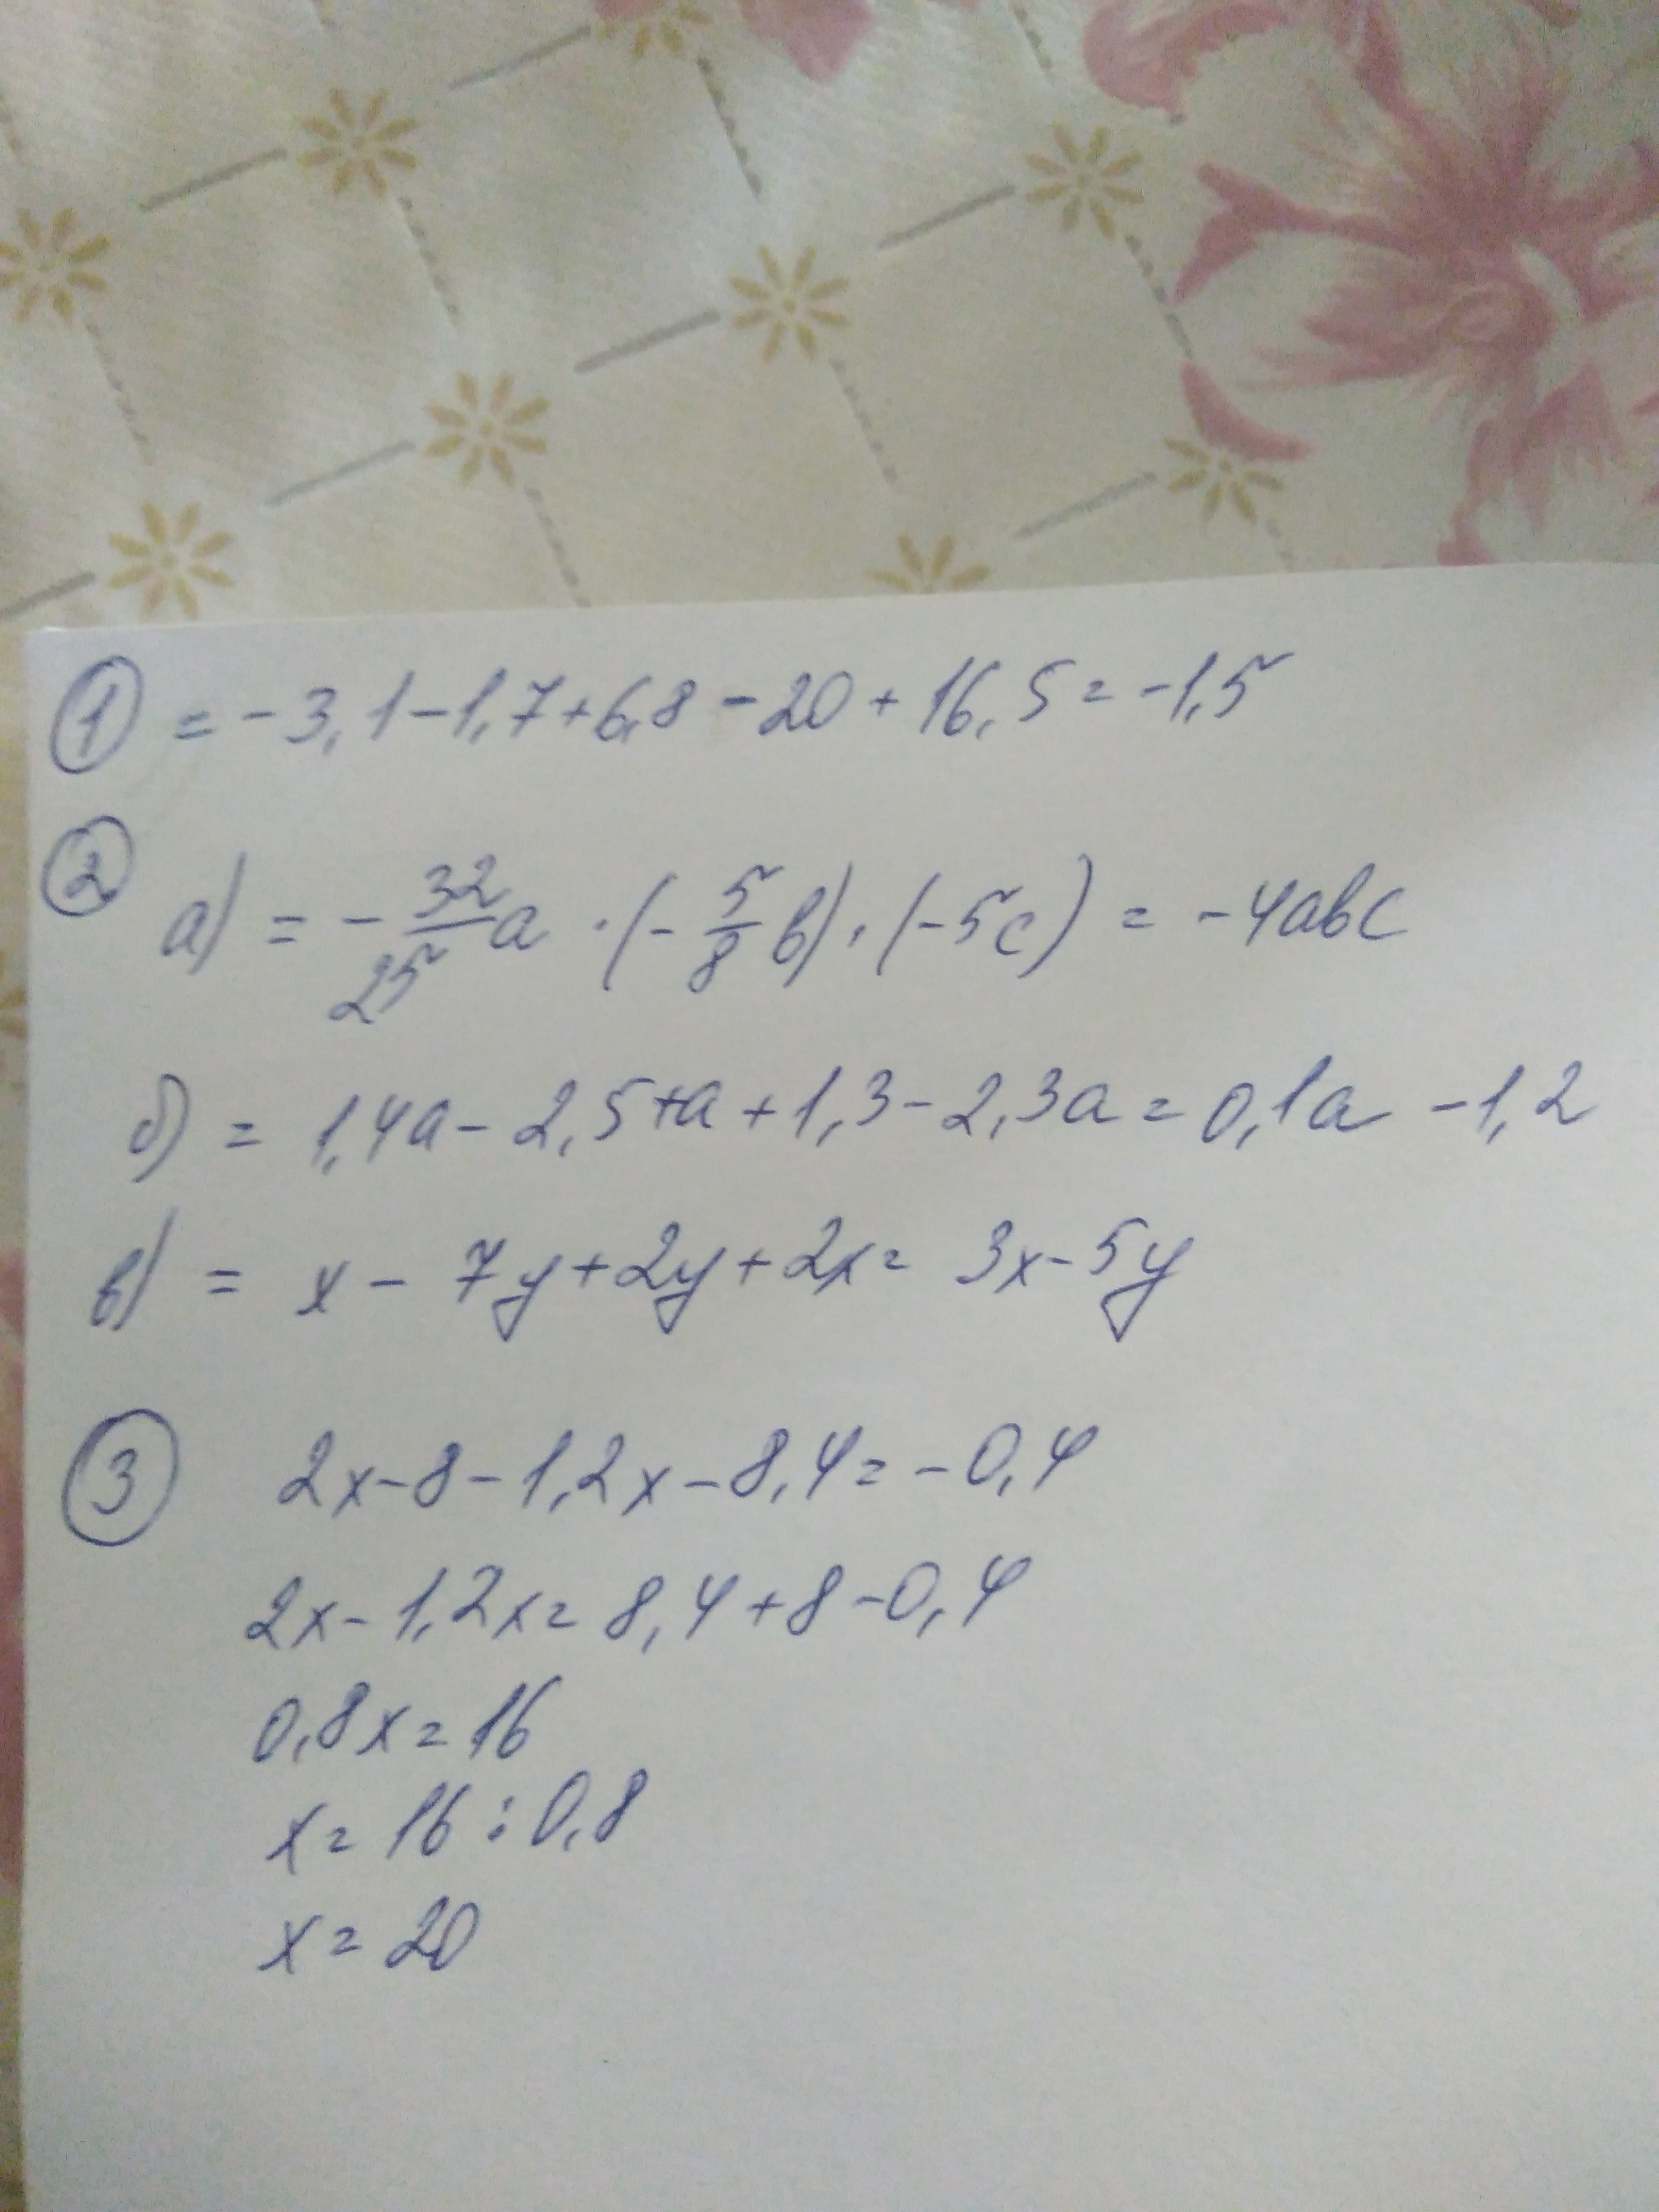 ① = -3,1-1,7+6,8-20+16,5=-1,5
② а) = -32/25a·(-5/8b)·(-5c)=-4abc
б) = 1,4a-2,5+a+1,3-2,3a=0,1a-1,2
в) = x-7y+2y+2x=3x-5y
③ 2x-8-1,2x-8,4=-0,4
2x-1,2x=8,4+8-0,4
0,8x=16
x=16:0,8
x=20